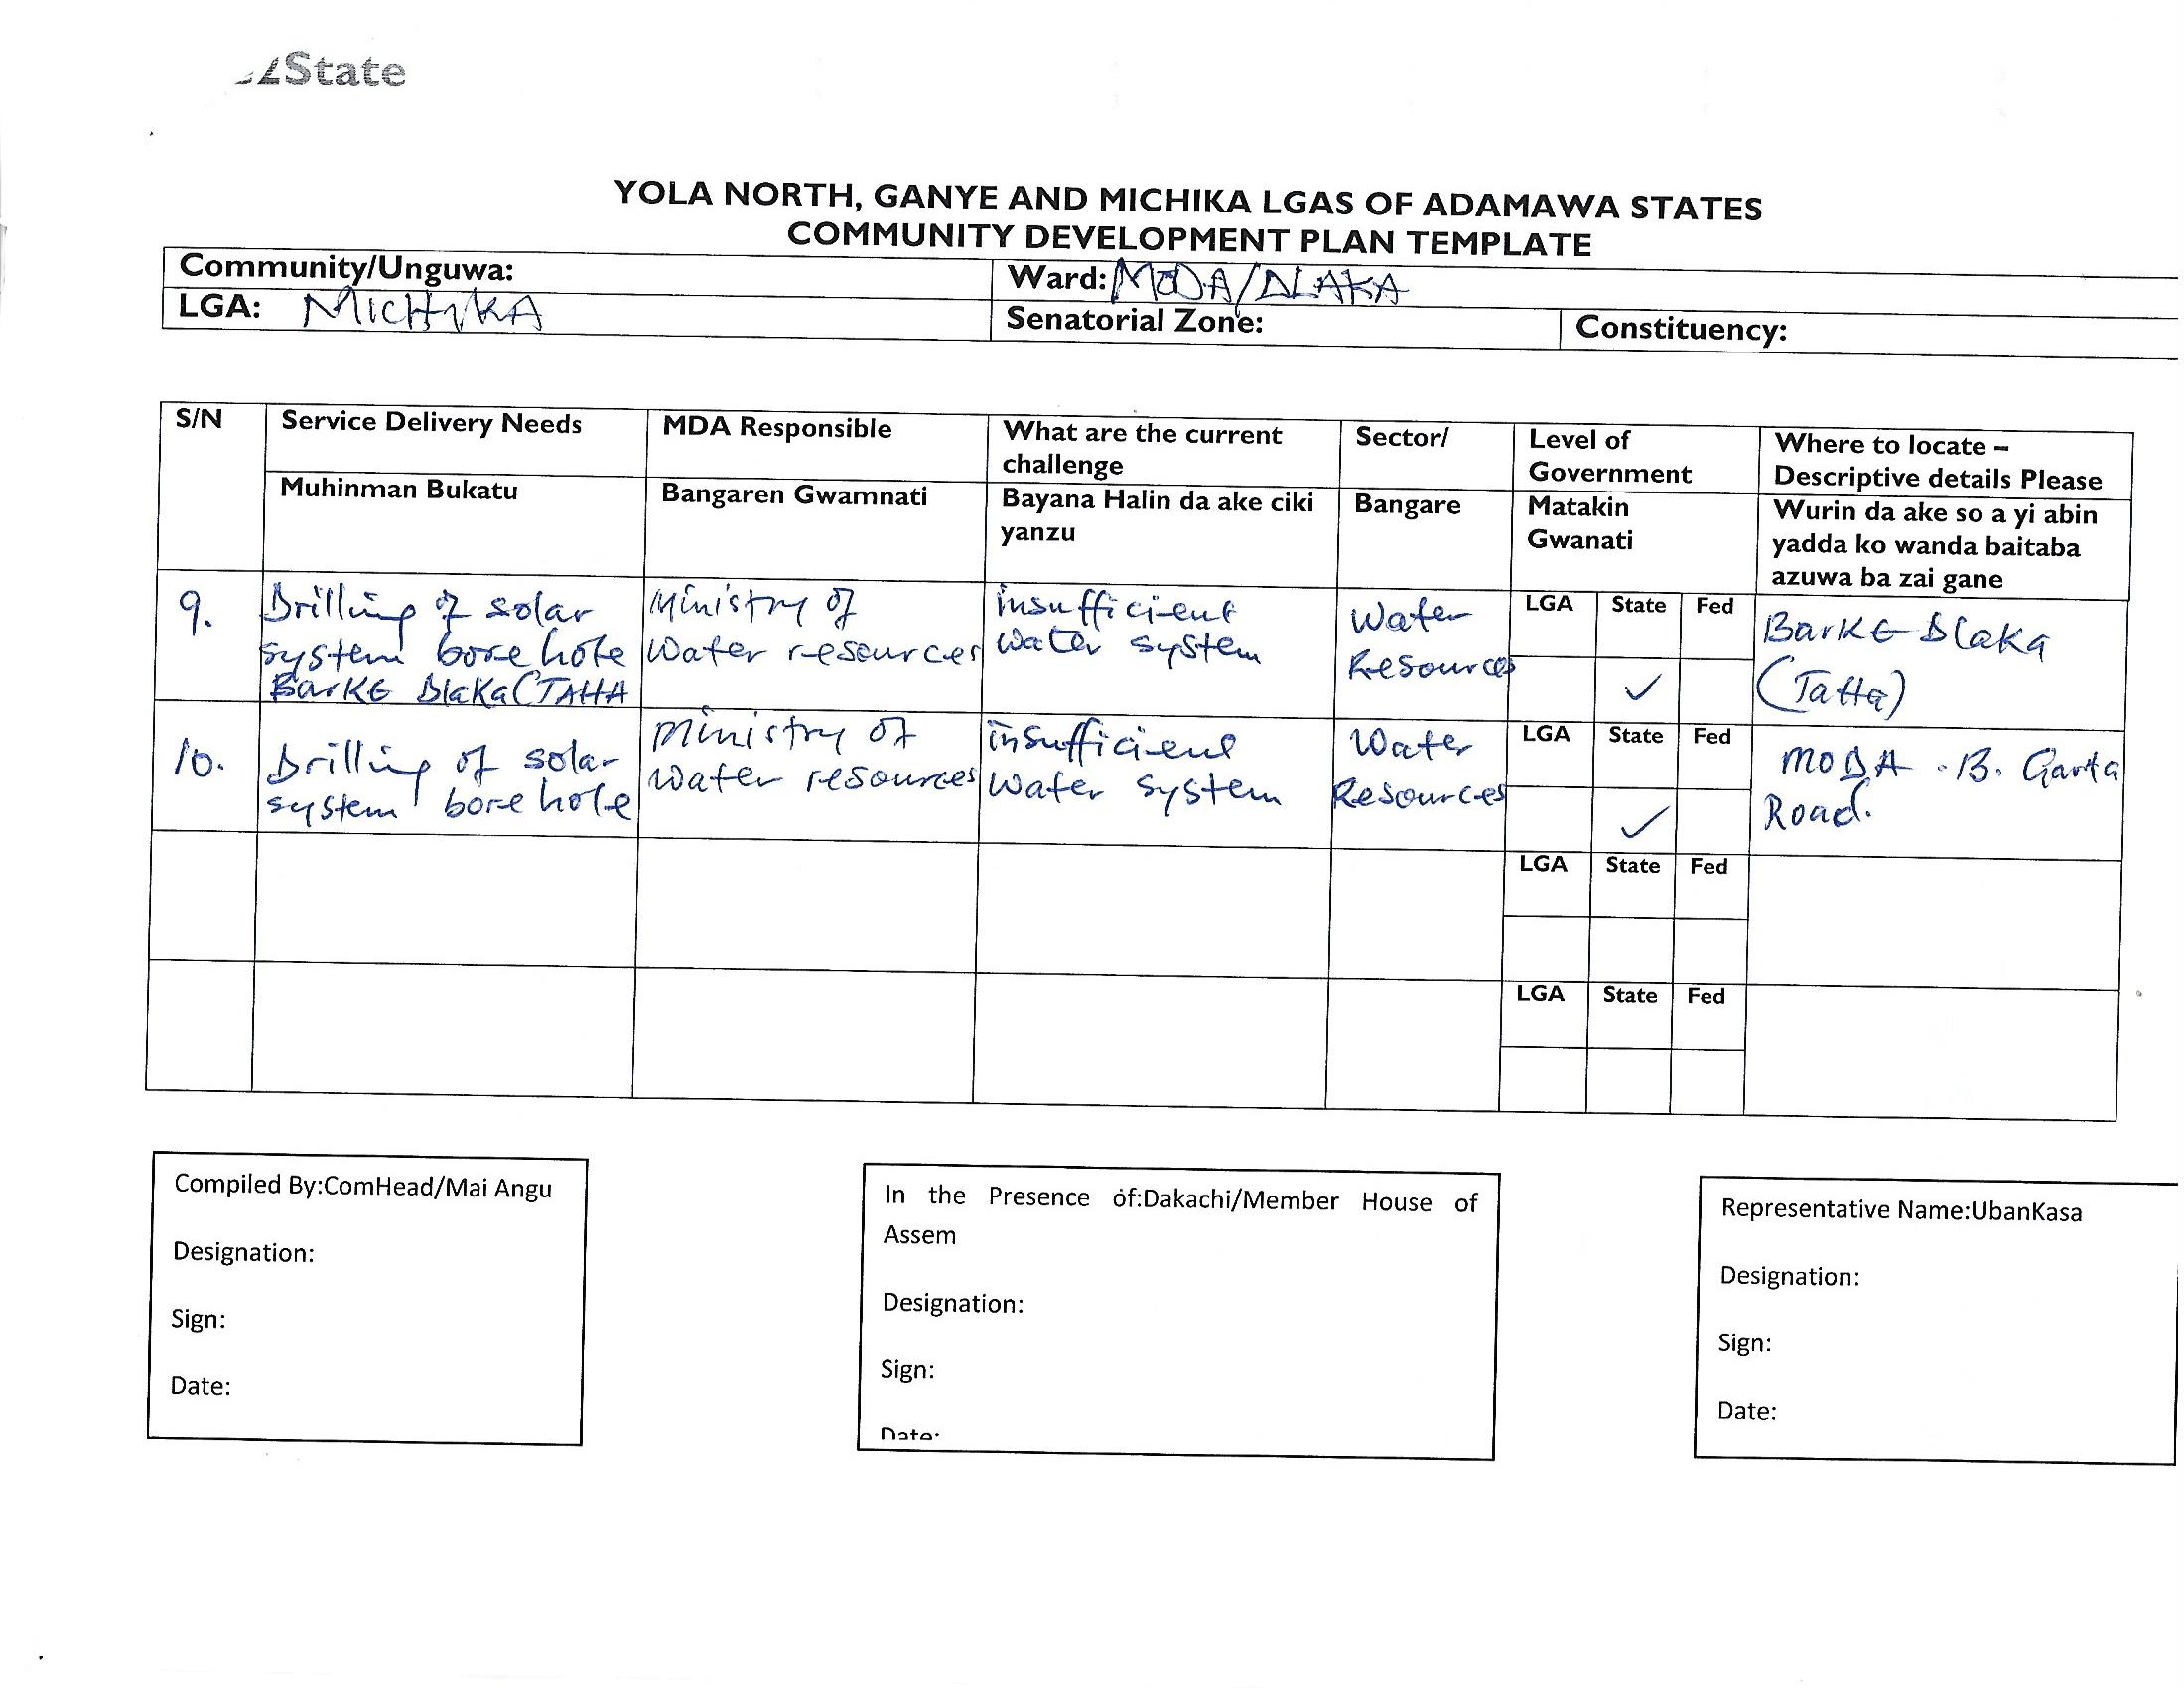 State
YOLA NORTH, GANYE AND MICHIKA LGAS OF ADAMAWA STATES
COMMUNITY DEVELOPMENT PLAN TEMPLATE
Community/Unguwa:
Ward: MODA/DLAKA
LGA: MICHIKA
Senatorial Zone:
Constituency:
S/N
Service Delivery Needs
MDA Responsible
What are the current
challenge
Sector/
Level of
Government
Where to locate –
Descriptive details Please
Muhinman Bukatu
Bangaren Gwamnati
Bayana Halin da ake ciki
yanzu
Bangare
Matakin
Gwanati
Wurin da ake so a yi abin
yadda ko wanda baitaba
azuwa ba zai gane
9.
Drilling of solar
system bore hole
BarKE DlaKa (TAHA
Ministry of
Water resources
insufficient
water system
Water
Resources
LGA State Fed
✓
BarKE Dlaka
(Tatta)
10.
Drilling of solar
system bore hole
Ministry of
water resources
insufficient
Water system
Water
Resources
LGA State Fed
✓
MODA - B. Garta
Road.
LGA State Fed
LGA State Fed
Compiled By:ComHead/Mai Angu
Designation:
Sign:
Date:
In the Presence of:Dakachi/Member House of
Assem
Designation:
Sign:
Date:
Representative Name:UbanKasa
Designation:
Sign:
Date: